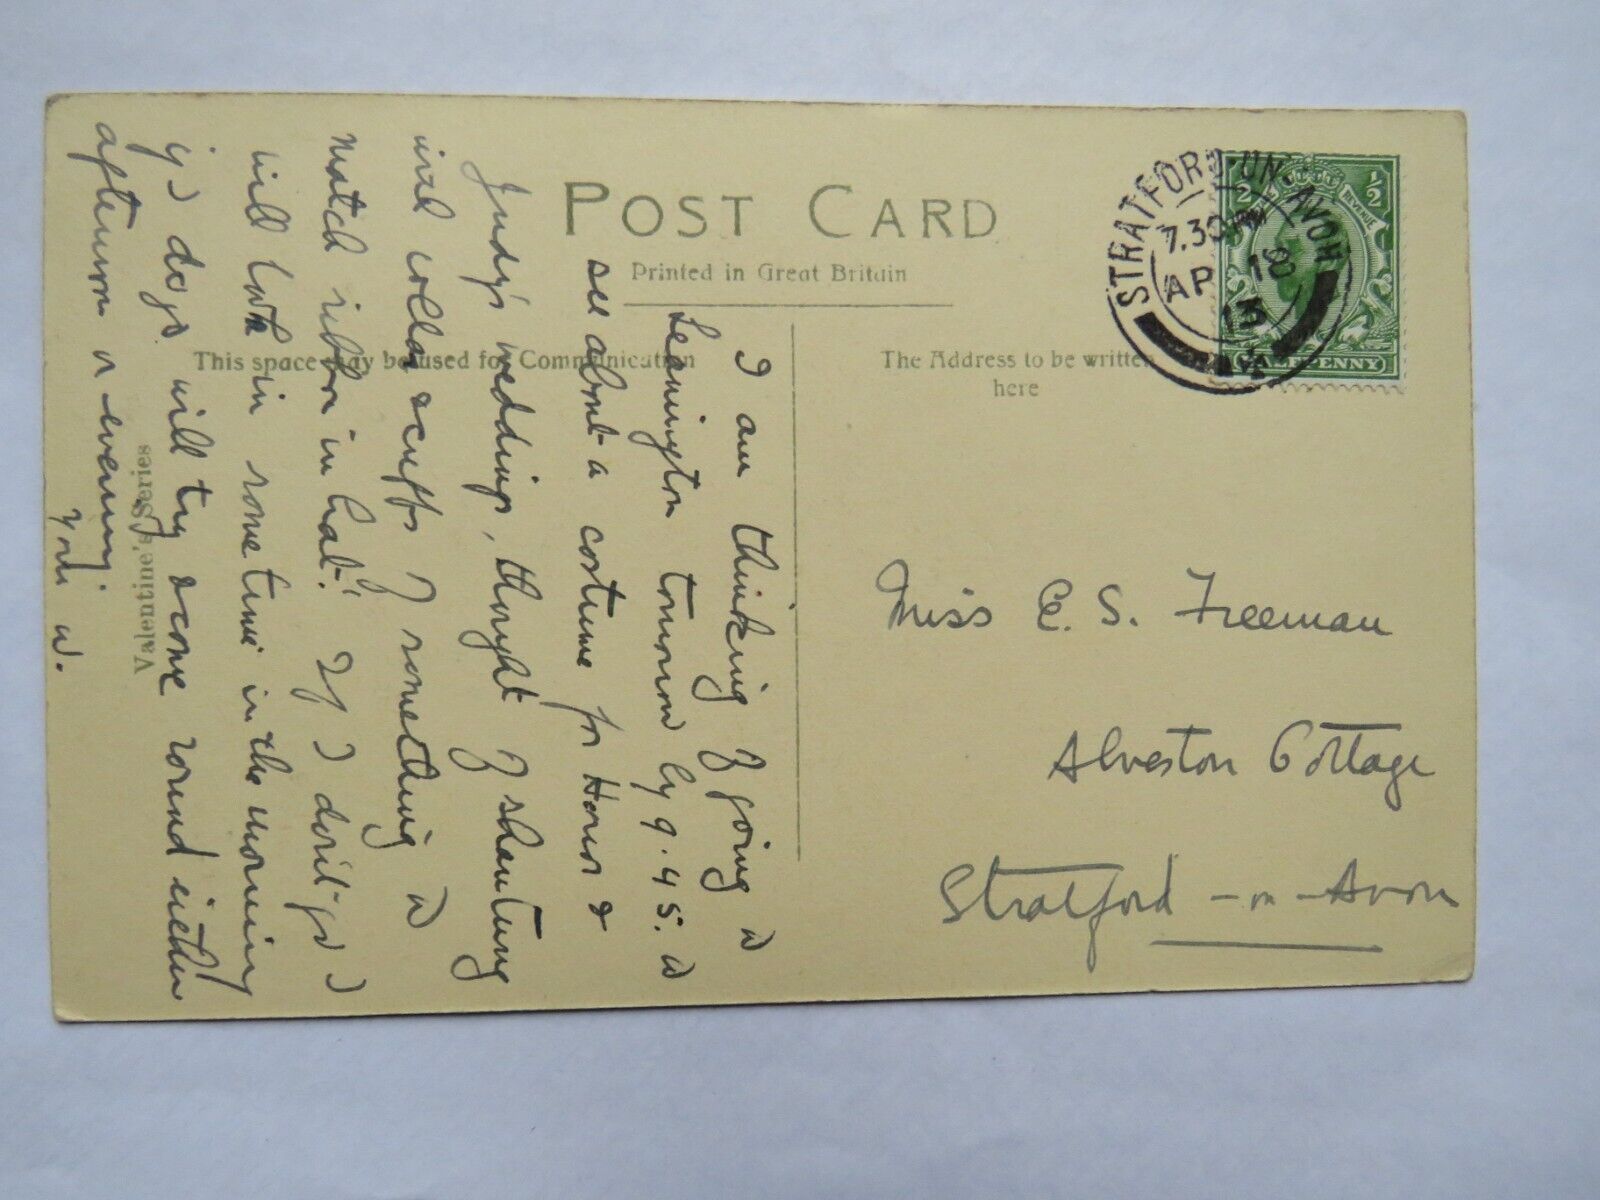 POST CARD
Printed in Great Britain
This space may be used for Communication
The Address to be written
here
Valentine's Series
STRATFORD-ON-AVON
7.30 PM
AP 18
13
1/2
1/2
REVENUE
HALFPENNY
I am thinking of going to
Leamington tomorrow by 9.45. to
see about a costume for Honor &
Judy's wedding, thought of shantung
with collar & cuffs of something to
match ribbon in hat. If I don't go I
will look in sometime in the morning
if I do go will try & come round either
afternoon or evening.
Yours W.
Miss E. S. Freeman
Alveston Cottage
Stratford-on-Avon